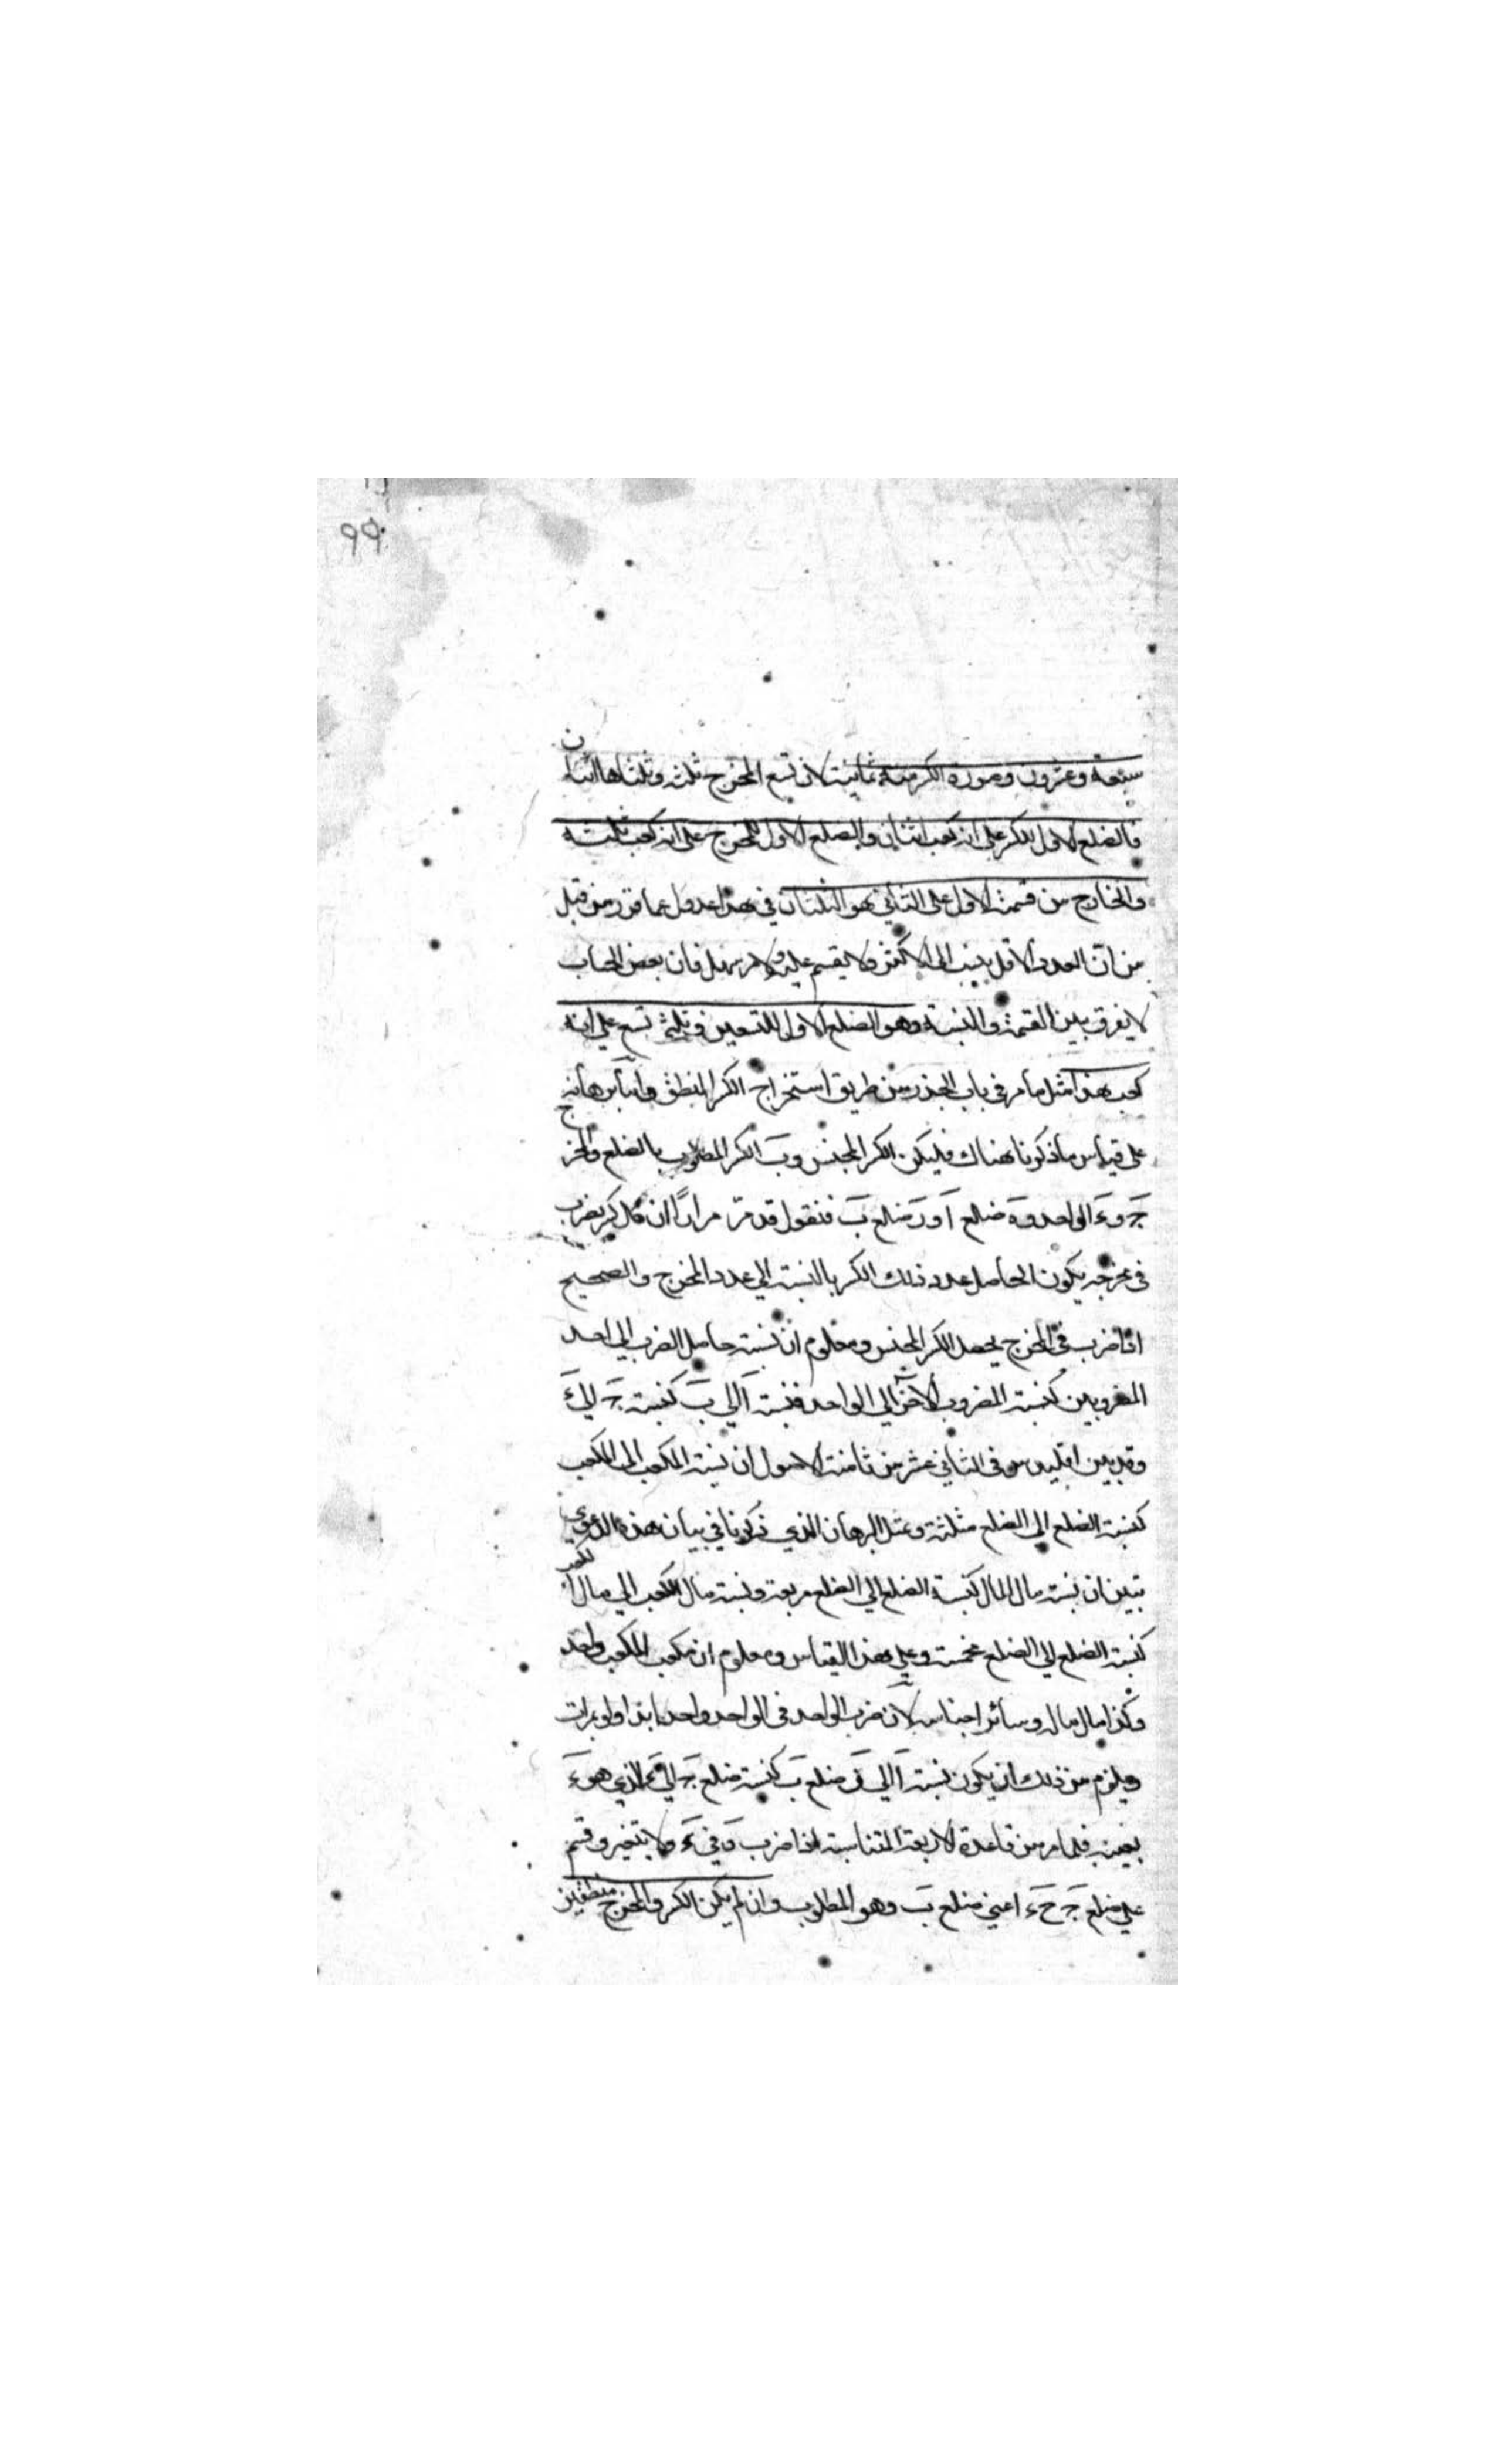 ٩٩
سبعة وعشرون وصورة الكسر منه ثمانية لان تسع المخرج ثلثة وثلثاها اثنان
فالضلع الاول للكسر على انه كعب اثنان والضلع الاول للمخرج على انه كعب ثلثة
والخارج من قسمة الاول على الثاني هو الثلثان في هذا عدول عما قرر من قبل
من ان العدد الاقل ينسب الى الاكثر ولا يقسم عليه والامر سهل فان بعض الحساب
لا يفرق بين القسمة والنسبة وهو الضلع الاول للتسعين وثلثي تسع على انه
كعب هذا مثل ما مر في باب الجذر من طريق استخراج الكسر المنطق واما برهانه
على قياس ما ذكرنا هناك فليكن ا الكسر المجنس وب الكسر المطلوب بالضلع والمخرج
ج وء الواحد وه ضلع ا ور ضلع ب فنقول قد مر مرارا ان كل كسر يضرب
في مخرجه يكون الحاصل عدد ذلك الكسر بالنسبة الى عدد المخرج والصحيح
اذا ضرب في المخرج يحصل الكسر المجنس ومعلوم ان نسبة حاصل الضرب الى احد
المضروبين كنسبة المضروب الاخر الى الواحد فنسبة ا الى ب كنسبة ج الى ء
وقد بين اقليدس في الثاني عشر من ثامنة الاصول ان نسبة المكعب الى المكعب
كنسبة الضلع الى الضلع مثلثة وبمثل البرهان الذي ذكرنا في بيان هذه الدعوى
تبين ان نسبة مال المال كنسبة الضلع الى الضلع مربعة ونسبة مال الكعب الى مال الكعب
كنسبة الضلع الى الضلع مخمسة وعلى هذا القياس ومعلوم ان مكعب المكعب واحد
وكذا مال ماله وسائر اجناسه لان ضرب الواحد في الواحد واحد ابدا ولو بمرات
ويلزم من ذلك ان يكون نسبة ا الى ضلع ب كنسبة ضلع ج الى الذي هو ء
بعينه فلما مر من قاعدة الاربعة المتناسبة اذا ضرب ه في ء ولا يتغير وقسم
على ضلع ج ح ء اعني ضلع ب وهو المطلوب وان لم يكن الكسر والمخرج منطقين